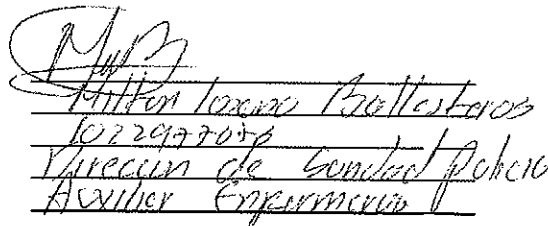 Milton Lozano Ballesteros
1022977073
Dirección de Sanidad Policia
Auxiliar Enfermeria